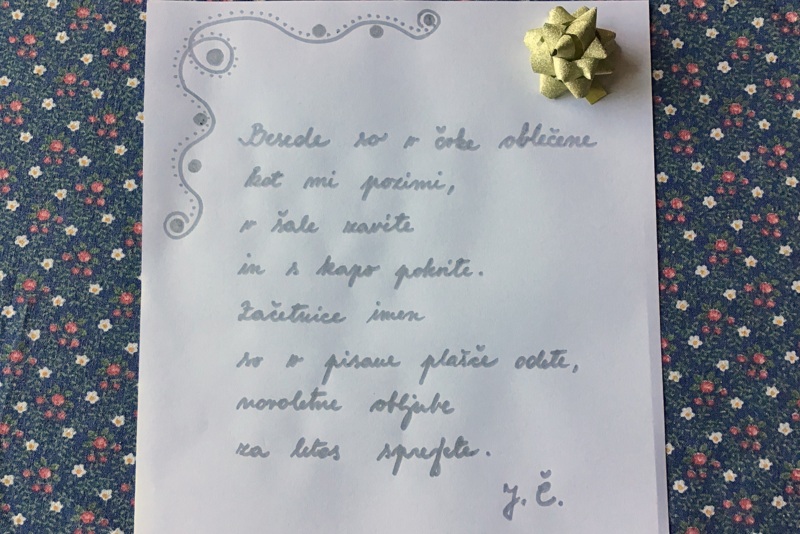 Besede so v črke oblečene
kot mi pozimi,
v šale zavite
in s kapo pokrite.
Začetnice imen
so v pisane plašče odete,
novoletne obljube
za letos sprejete.
J. Č.